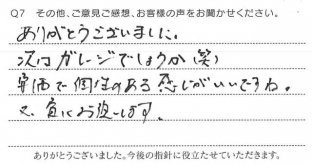 Q7 その他、ご意見ご感想、お客様の声をお聞かせください。
ありがとうございました。
次はガレージでしょうか(笑)
安価で個性のある感じがいいですね。
又、負にお返します。
ありがとうございました。今後の指針に役立たせていただきます。